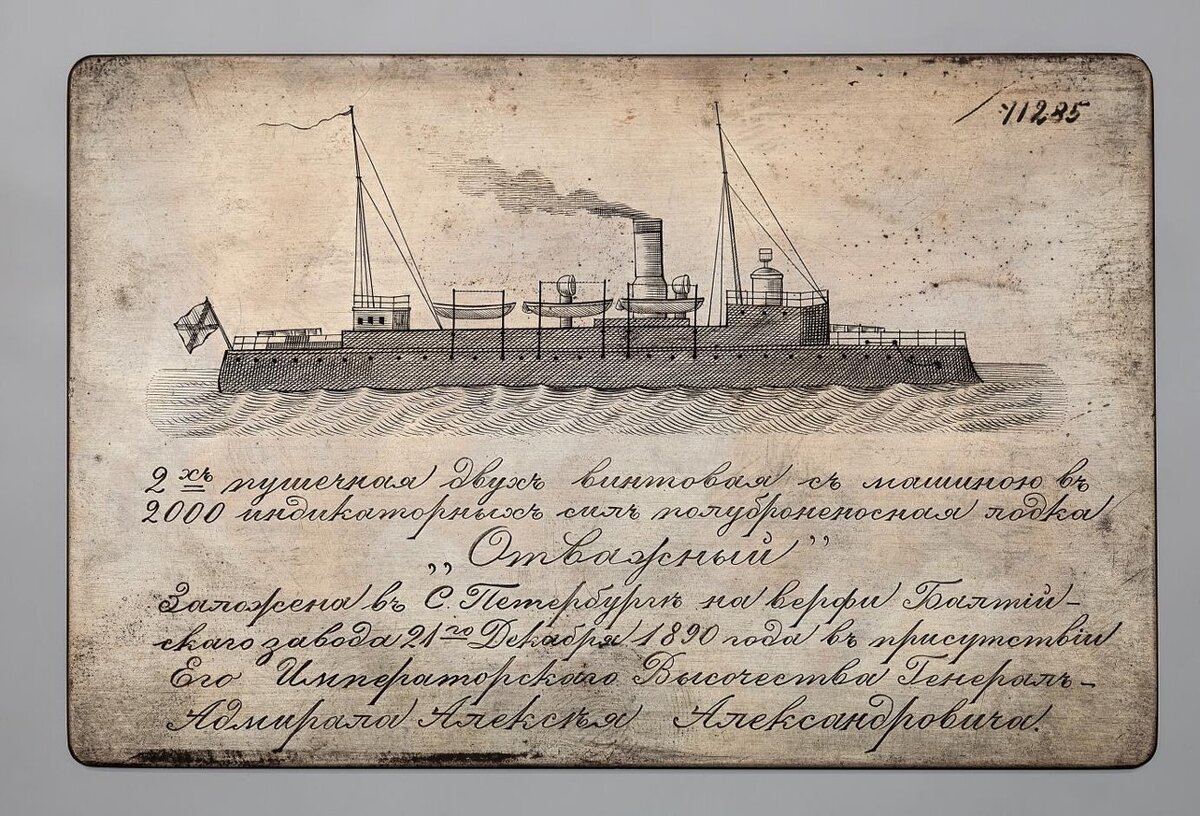 11285
2хъ пушечная двухъ винтовая съ машиною въ
2000 индикаторныхъ силъ полуброненосная лодка
„Отважный”
Заложена въ С. Петербургѣ на верфи Балтій-
скаго завода 21го Декабря 1890 года въ присутствіи
Его Императорскаго Высочества Генералъ-
Адмирала Алексѣя Александровича.